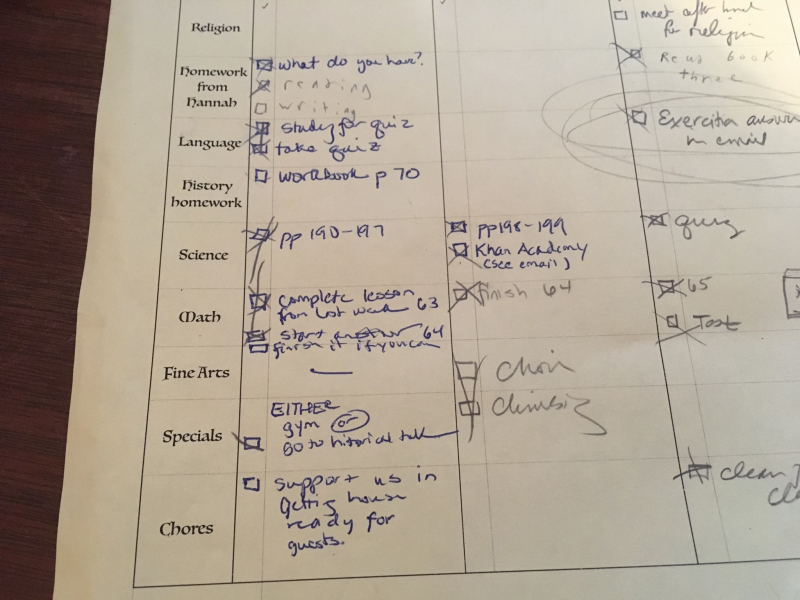 Religion
meet after
Homework
from
Hannah
what do you have?
reading
writing
book
three
Language
study for quiz
take quiz
answer
in email
History
homework
workbook p 70
Science
pp 190-197
pp198-199
Khan Academy
(see email)
quiz
Math
complete lesson
from last week 63
start another 64
finish it if you can
finish 64
65
Test
Fine Arts
Choir
Specials
EITHER
gym or
go to historical talk
Climbing
Chores
support us in
getting house
ready for
guests.
clean